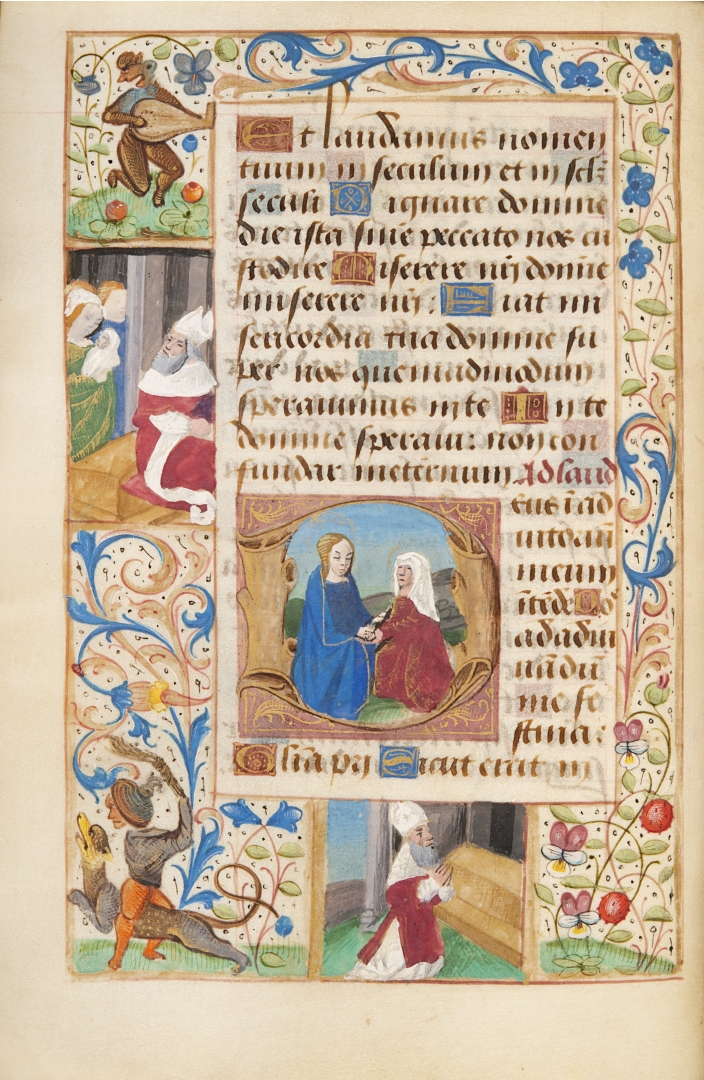 Et laudamus nomen
tuum in seculum et in scl'z
seculi Dignare domine
die ista sine peccato nos cu
stodire Miserere nri domine
miserere nri: Fiat mi
sericordia tua domine su
per nos quemadmodum
sperauimus in te In te
domine speraui: non con
fundar in eternum Ad laud
D eus in ad
iutoriū
meum
intēde Do
ī ad adiu
uādū
me fe
stina:
Glia pri Sicut erat in